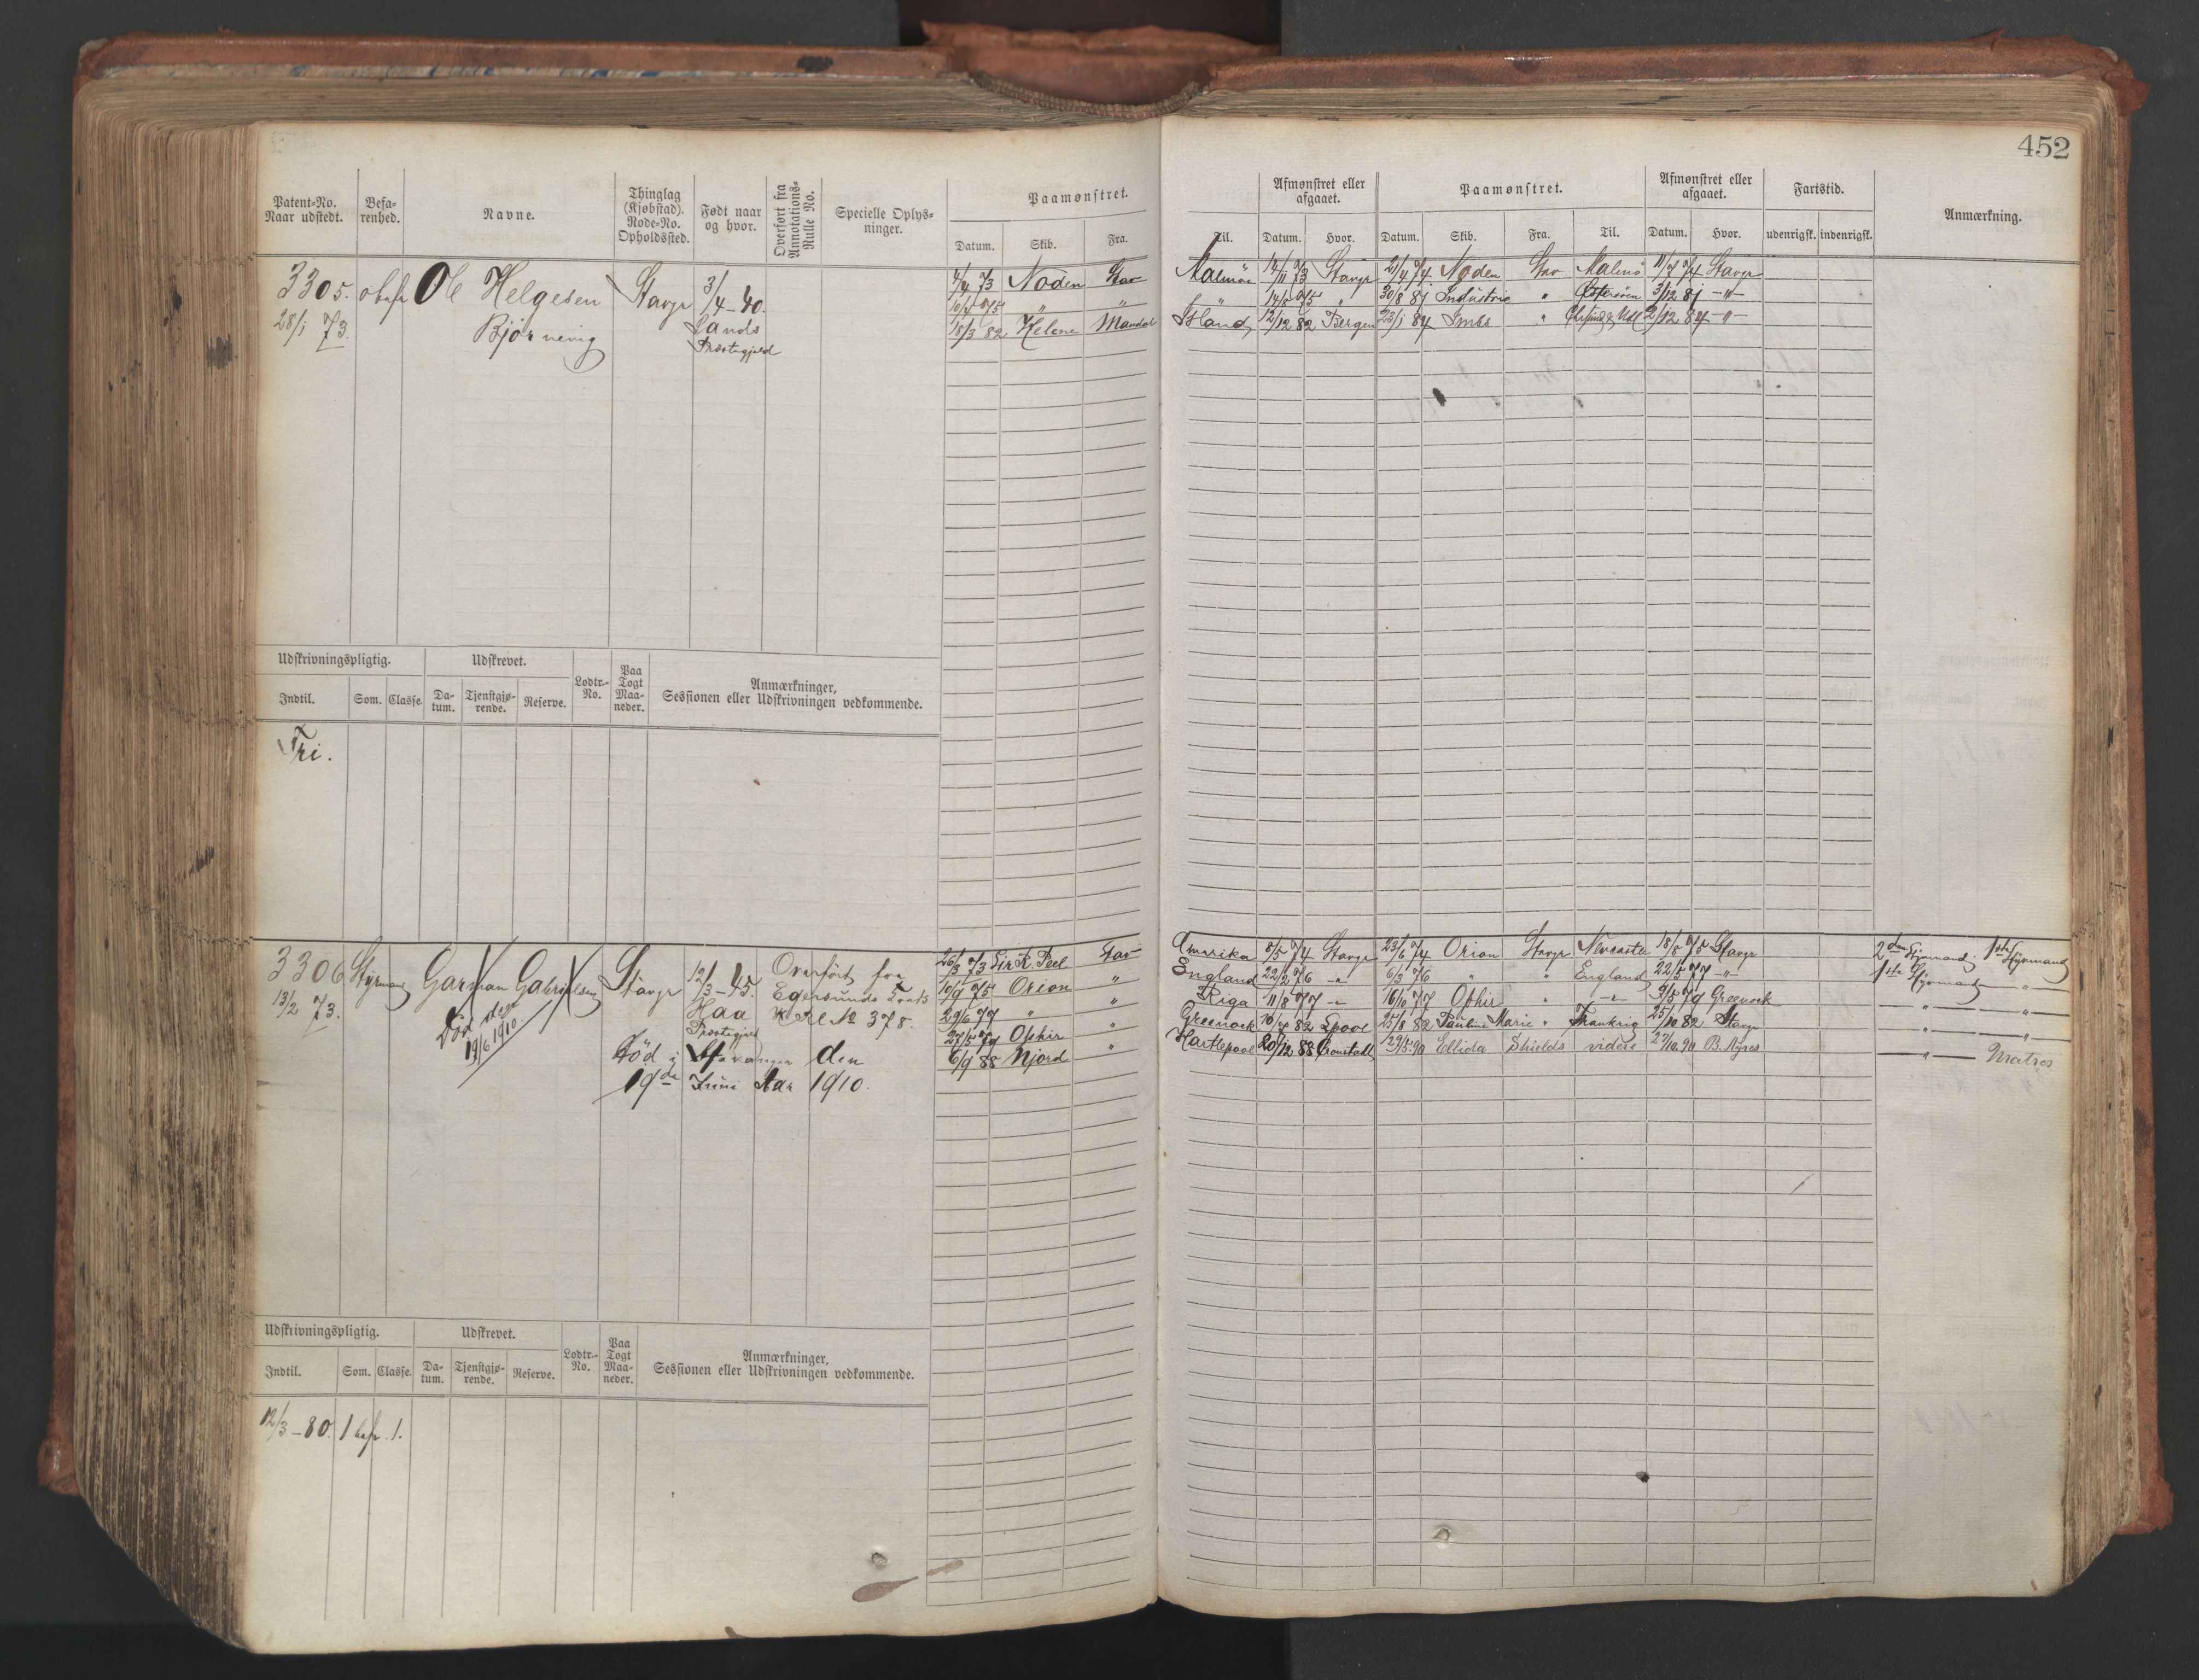 452
Patent-No. Naar udstedt. Befa-renhed. Navne. Thinglag (Kjøbstad). Rode-No. Opholdssted. Født naar og hvor. Overført fra Annotations-Rulle No. Specielle Oplys-ninger. Paamønstret.
Datum. Skib. Fra.
Til. Afmønstret eller afgaaet. Paamønstret. Afmønstret eller afgaaet. Fartstid. Anmærkning.
Datum. Hvor. Datum. Skib. Fra. Til. Datum. Hvor. udenrigsk. indenrigsk.
3305. Ole Helgesen Stavgr 3/4-40.
28/1 73. Bjørnevig Lands Præstegjeld
4/4 73 Noden Stav Malmöe 14/11 73 Stavgr 21/4 74 Noden Stav Malmö 11/7 74 Stavgr
10/4 75 " " " 14/8 75 " 30/8 81 Industrie " 3/12 81 -"-
18/3 82 Helene Mandal Island 12/12 82 Bergen 23/1 84 " 2/12 84 -"-
Udskrivningspligtig. Udskrevet. Lodtr.-No. Paa Togt Maa-neder. Anmærkninger, Sessionen eller Udskrivningen vedkommende.
Indtil. Som. Classe. Da-tum. Tjenstgjø-rende. Reserve.
Fri.
3306 Styrmand Garman Gabrielsen Stavgr 12/3-45. Overført fra
13/2 73. Haa Præstegjeld Egersunds
No 378.
Död
19/6 1910.
Död i Stavanger den
19de Juni Aar 1910.
26/3 73 Sir R. Peel Stav Amerika 8/5 74 Stavgr 23/6 74 Orion Stavgr Newcastle 18/8 75 Stavgr 2den Styrmand. 1ste Styrmand
10/9 75 Orion " England 22/2 76 -"- 6/3 76 " " England 22/5 77 -"- 1ste Styrmand -"-
29/6 77 " " Riga 11/8 77 -"- 16/10 77 Ophir " -"- 9/5 79 Greenock -"- -"-
27/5 79 Ophir " Greenock 82 Lpool 25/8 82 Pauline Marie " Frankrig 25/10 82 Stavgr -"- -"-
6/9 88 Njord " Hartlepool 20/12 88 Cronstadt 29/5 90 Ellida Shields videre 27/10 90 B. Ayres -"- Matros
Udskrivningspligtig. Udskrevet. Lodtr.-No. Paa Togt Maa-neder. Anmærkninger, Sessionen eller Udskrivningen vedkommende.
Indtil. Som. Classe. Da-tum. Tjenstgjø-rende. Reserve.
12/3-80. 1 1.